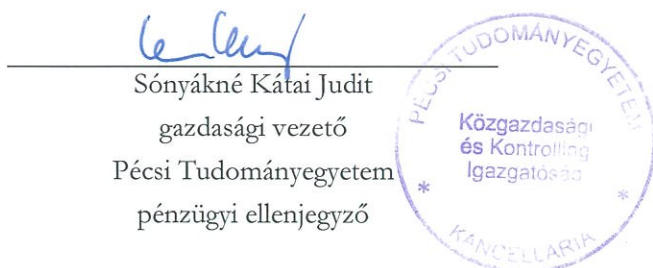 Sónyákné Kátai Judit
gazdasági vezető
Pécsi Tudományegyetem
pénzügyi ellenjegyző
PÉCSI TUDOMÁNYEGYETEM
Közgazdasági
és Kontrolling
Igazgatóság
* KANCELLÁRIA *